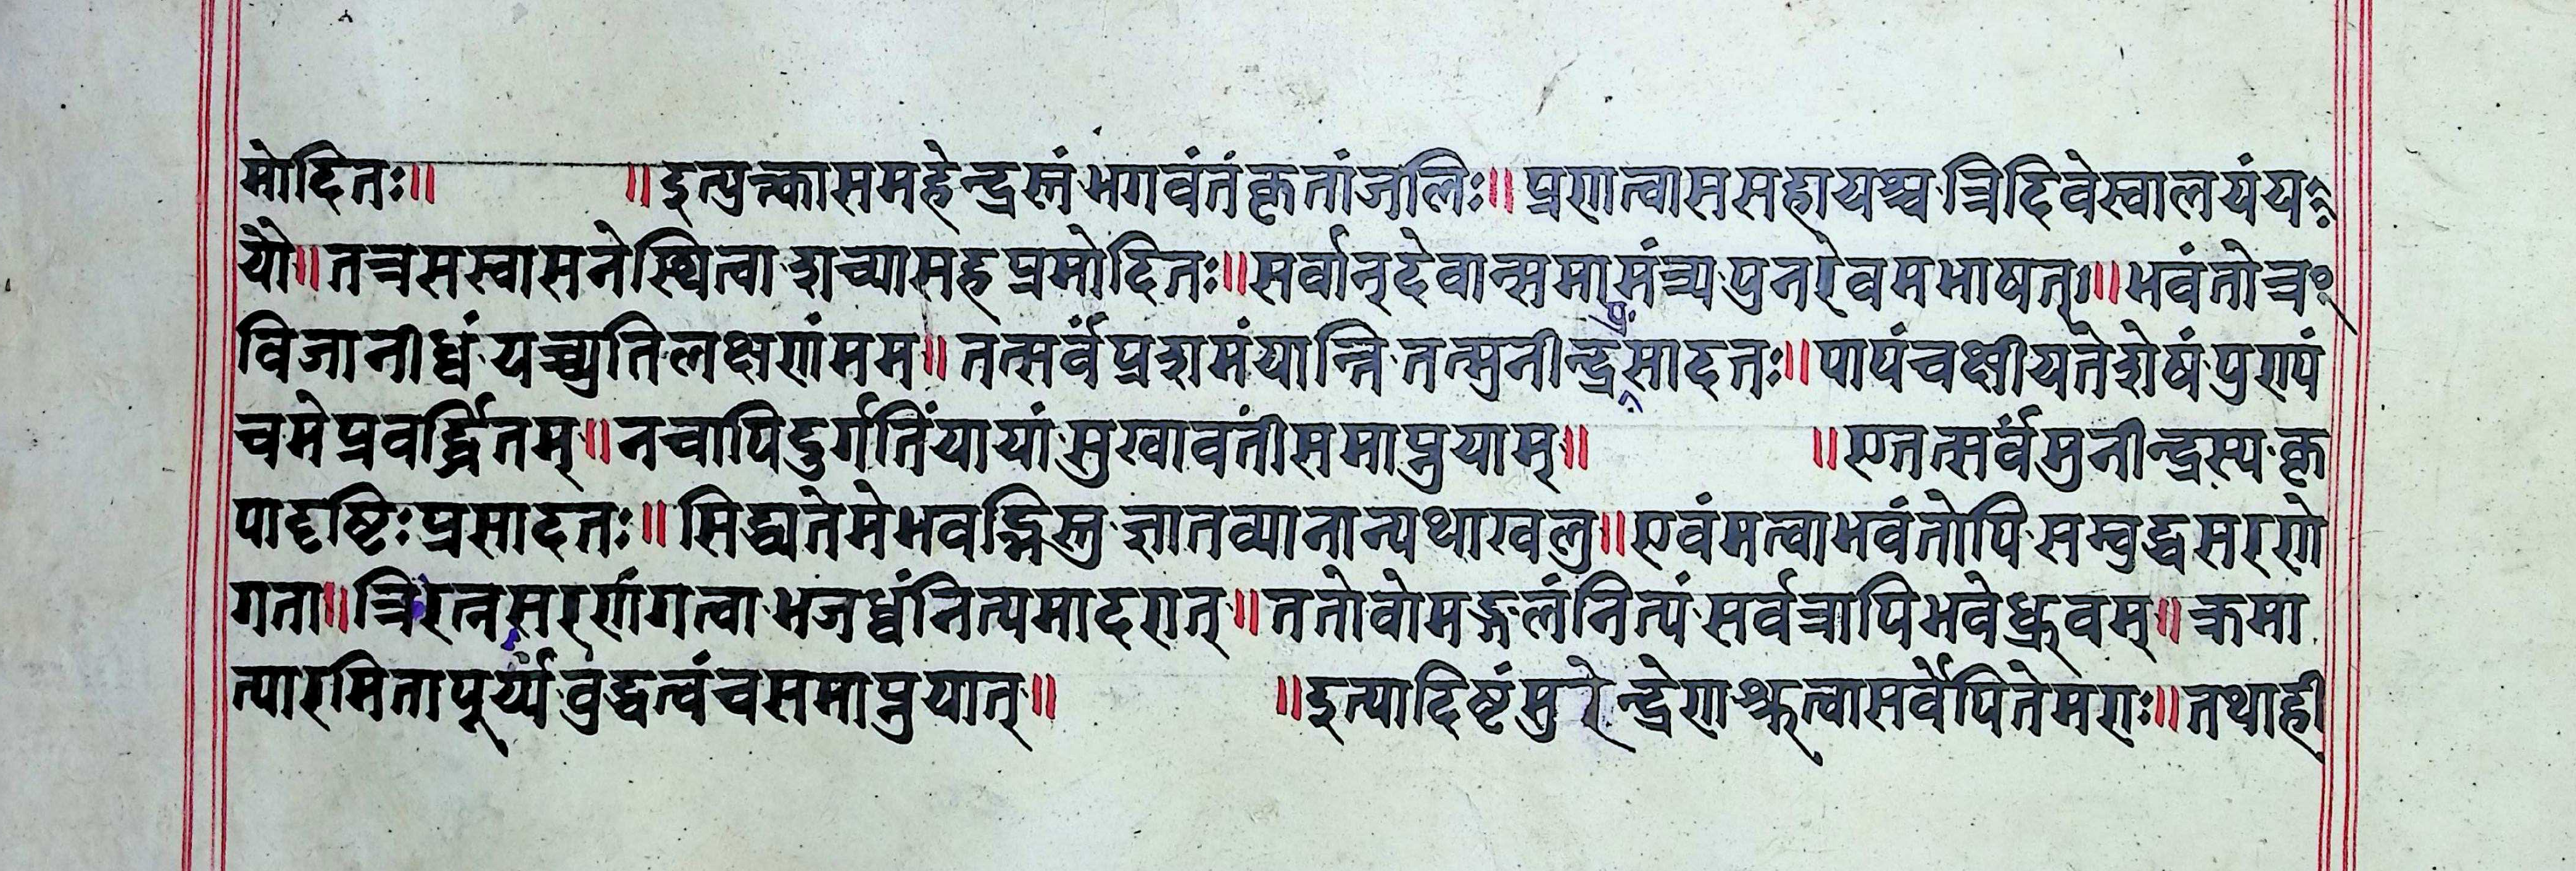 मोदितः॥ ॥इत्युक्त्कासमहेन्द्रस्तंभगवंतंकृतांजलिः॥प्रणत्वाससहायश्च त्रिदिवेस्वालयंय
यौ॥तत्रसस्वासनेस्थित्वा शच्यासहप्रमोदितः॥सर्वान्देवान्समामंत्र्य पुनरेवमभाषत्॥भवंतोत्र
विजानीध्वं यच्च्युतिलक्षणंमम॥तत्सर्वंप्रशमंयान्ति तत्मुनीन्द्रप्रसादतः॥पापंचक्षीयतेशेषं पुण्यं
चमेप्रवर्द्धितम्॥नचापिदुर्गतिंयायां सुखावतींसमाप्नुयाम्॥ ॥एतत्सर्वंमुनीन्द्रस्य कृ
पादृष्टिःप्रसादतः॥सिद्ध्यतेमेभवद्भिस्तु ज्ञातव्यानान्यथाखलु॥एवंमत्वाभवंतोपि सम्बुद्धसरणे
गता॥त्रिरत्नसरणंगत्वा भजध्वंनित्यमादरात्॥ततोवोमङ्गलंनित्यं सर्वत्रापिभवेध्रुवम्॥क्रमा
त्पारमितापूर्य्यं बुद्धत्वंचसमाप्नुयात्॥ ॥इत्यादिष्टंसुरेन्द्रेण श्रुत्वासर्वेपितेमराः॥तथाही